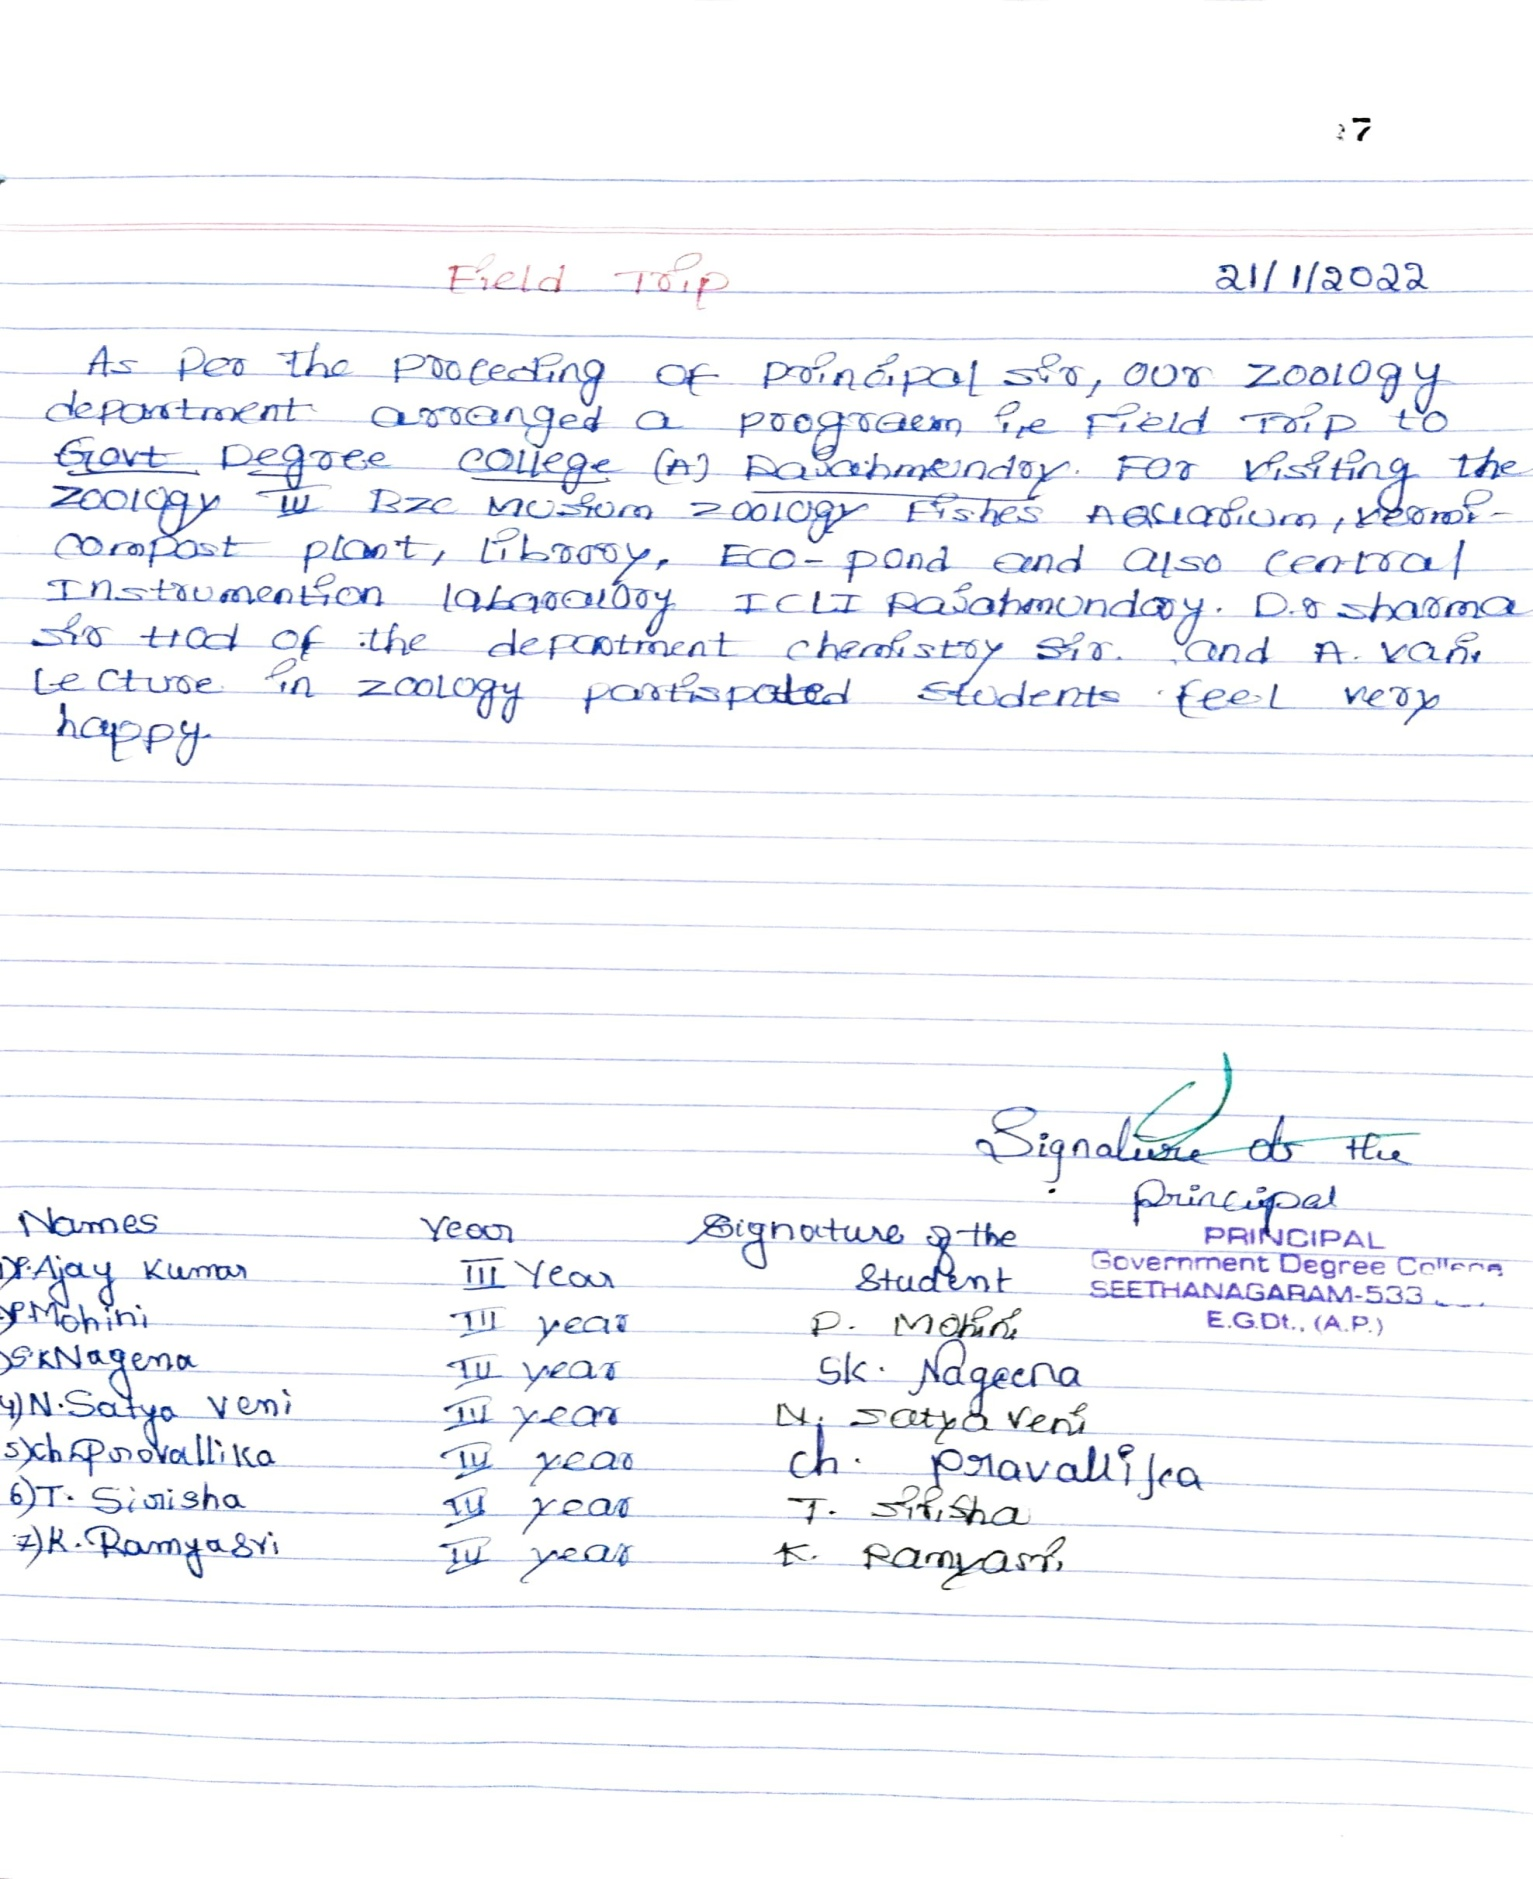 7
Field Trip 21/1/2022
As Per the Proceeding of principal sir, our Zoology
department arranged a program i,e Field Trip to
Govt Degree college (A) Rajahmendry. For visiting the
Zoology III Bzc Musium zoology Fishes Aequarium, vermi-
compost plant, library, ECO-pond and also central
Instrumention labaraloory ICLI Rajahmundary. D.r sharma
sir Had of the depertment chemistry sir. and A. vani
Lecture in zoology partispated students feel very
happy.
Signature of the
principal
PRINCIPAL
Government Degree College
SEETHANAGARAM-533
E.G.Dt., (A.P.)
Names Year Signature of the Student
1)P.Ajay Kumar III Year
P.Mohini III year P. Mohini
SK Nagena III year Sk. Nageena
4)N.Satya veni III year N. Satya veni
5)ch. Pravallika III year ch. pravallika
6)T. Sirisha III year T. Sirisha
7)K. Ramyasri III year K. Ramyasri